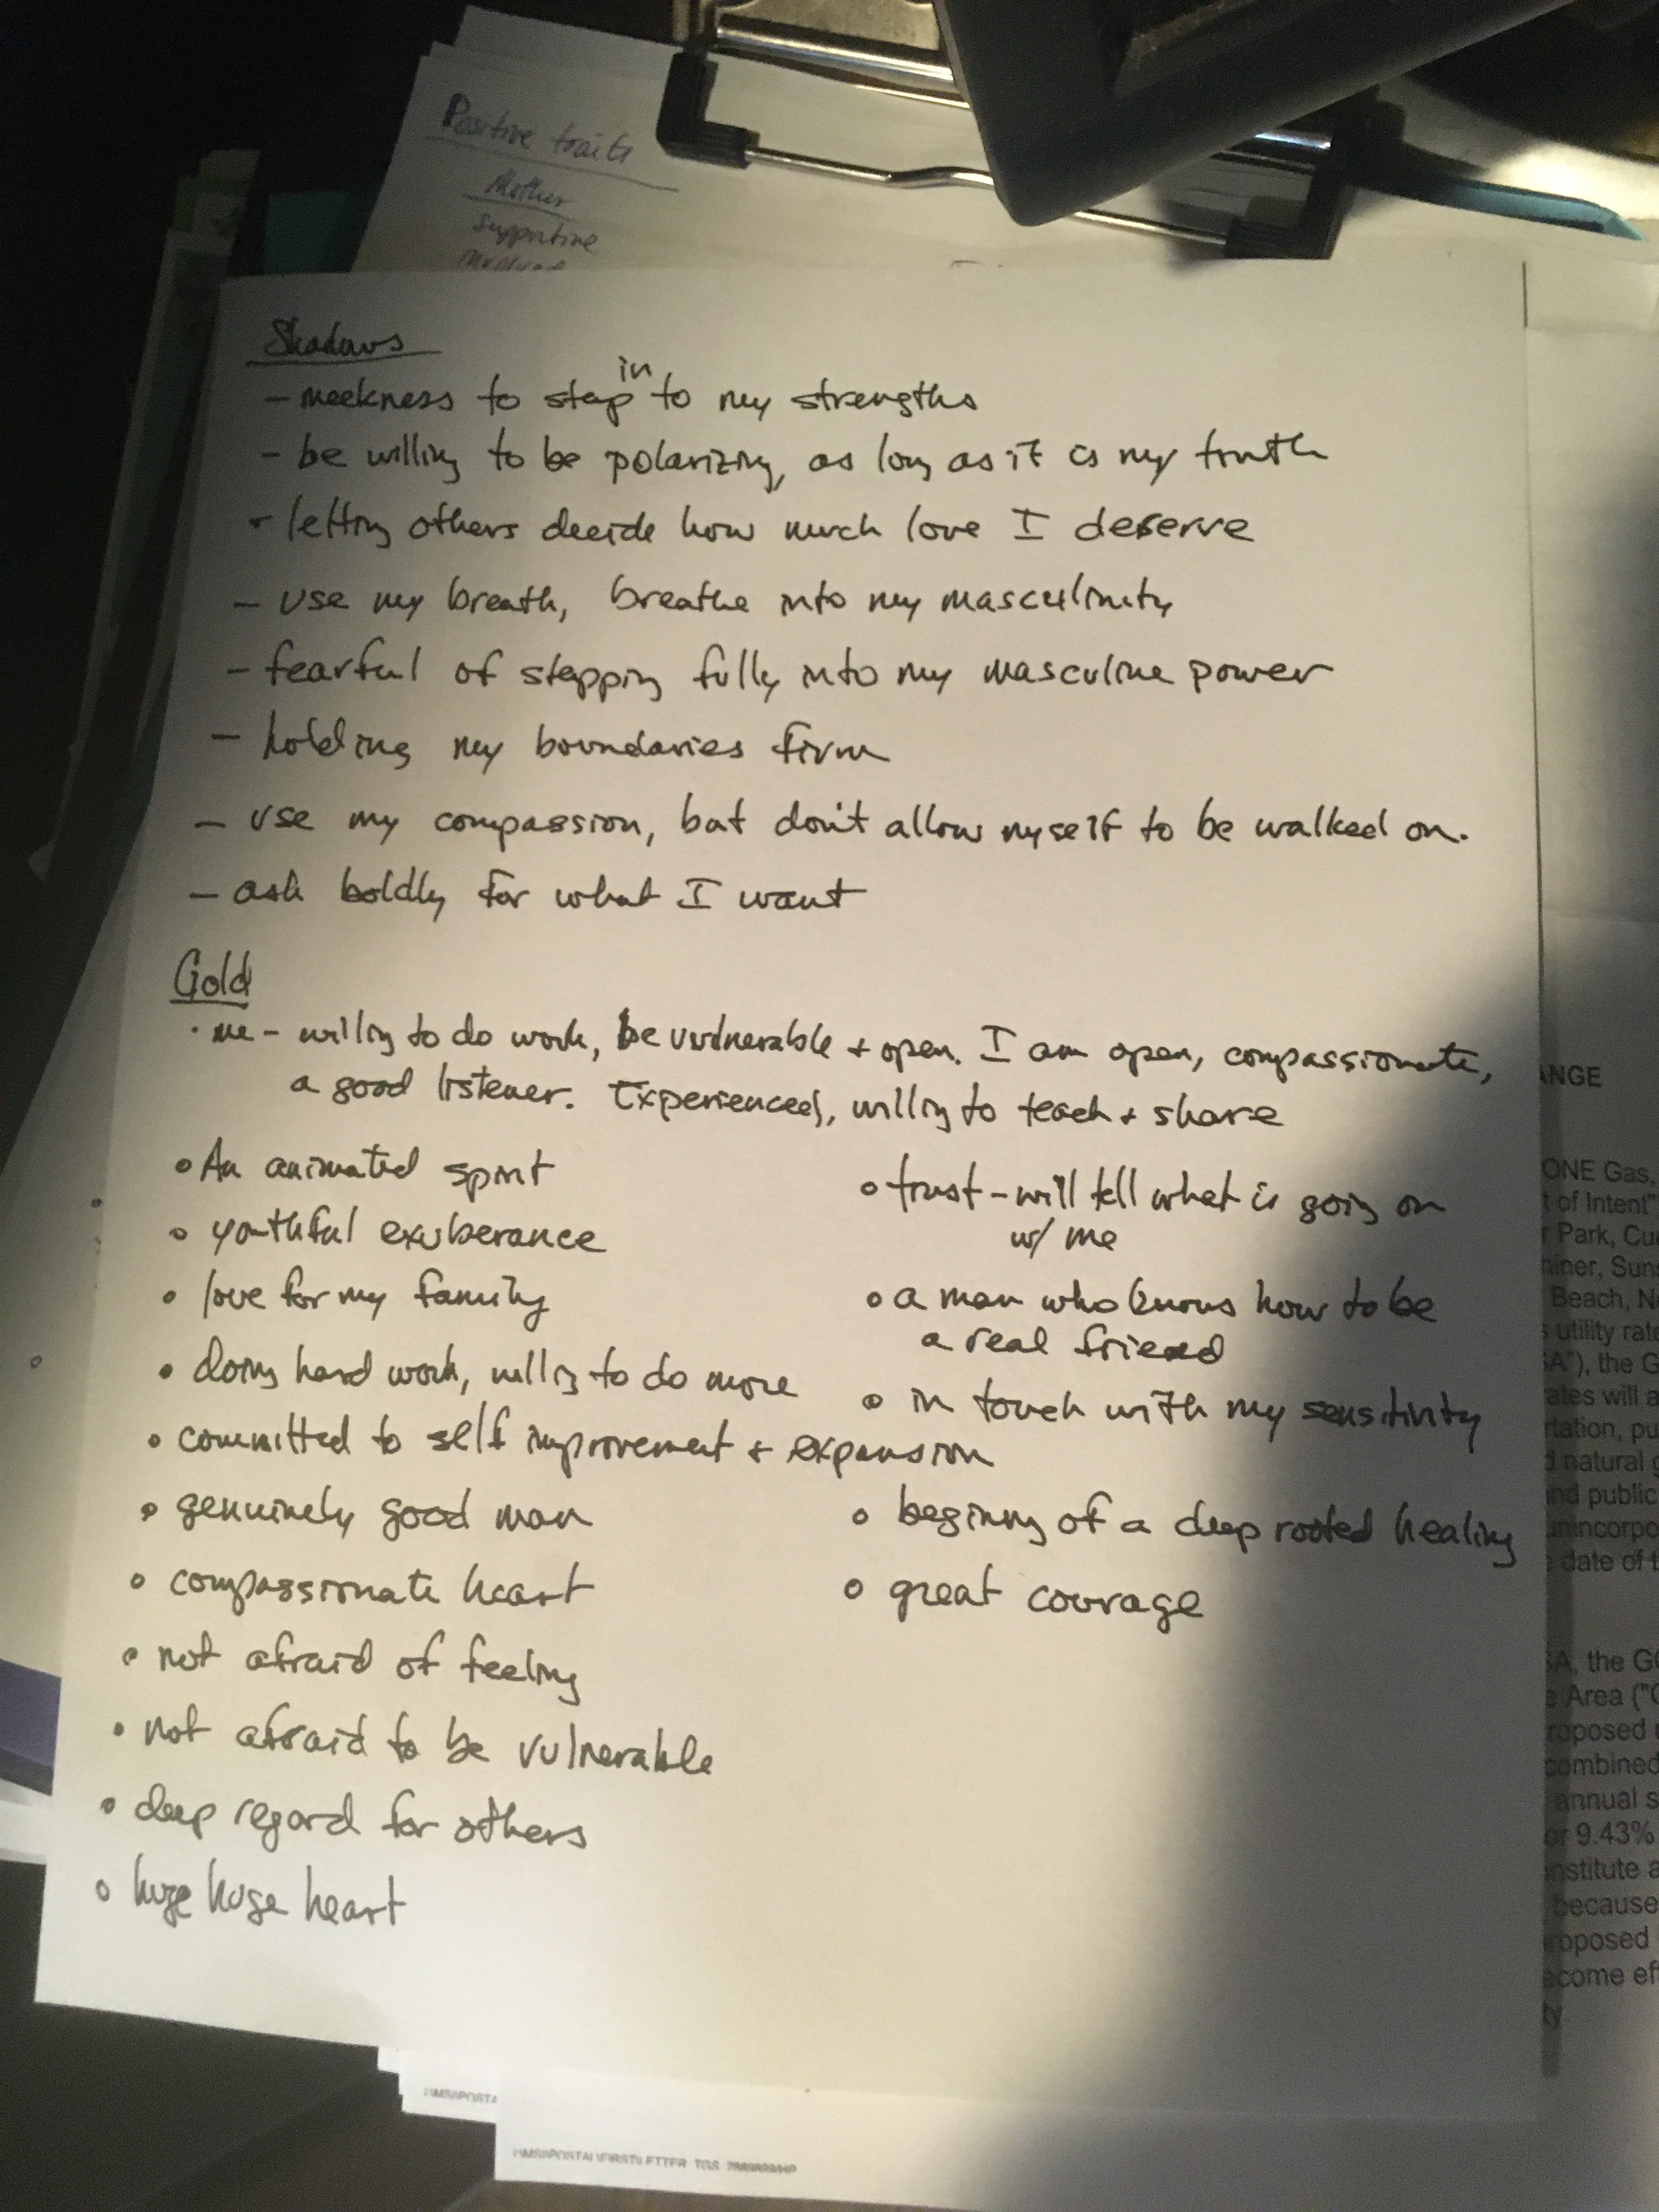 Positive traits
Mother
supportive
involved
Shadows
– meekness to step into my strengths
– be willing to be polarizing, as long as it is my truth
- letting others decide how much love I deserve
– use my breath, breathe into my masculinity
– fearful of stepping fully into my masculine power
– holding my boundaries firm
– use my compassion, but don't allow myself to be walked on.
– ask boldly for what I want
Gold
• me – willing to do work, be vulnerable + open. I am open, compassionate,
a good listener. Experienced, willing to teach + share
• An animated spirit
• youthful exuberance
• love for my family
• doing hard work, willing to do more
• committed to self improvement + expansion
• genuinely good man
• compassionate heart
• not afraid of feeling
• not afraid to be vulnerable
• deep regard for others
• huge huge heart
• trust – will tell what is going on
w/ me
• a man who knows how to be
a real friend
• in touch with my sensitivity
• beginning of a deep rooted healing
• great courage
ANGE
ONE Gas,
t of Intent"
r Park, Cu
niner, Suns
Beach, N
s utility rate
SA"), the G
ates will a
rtation, pu
d natural g
nd public
unincorpo
e date of t
SA, the G
e Area ("
roposed
combined
annual s
or 9.43%
nstitute a
because
roposed
ecome eff
ty